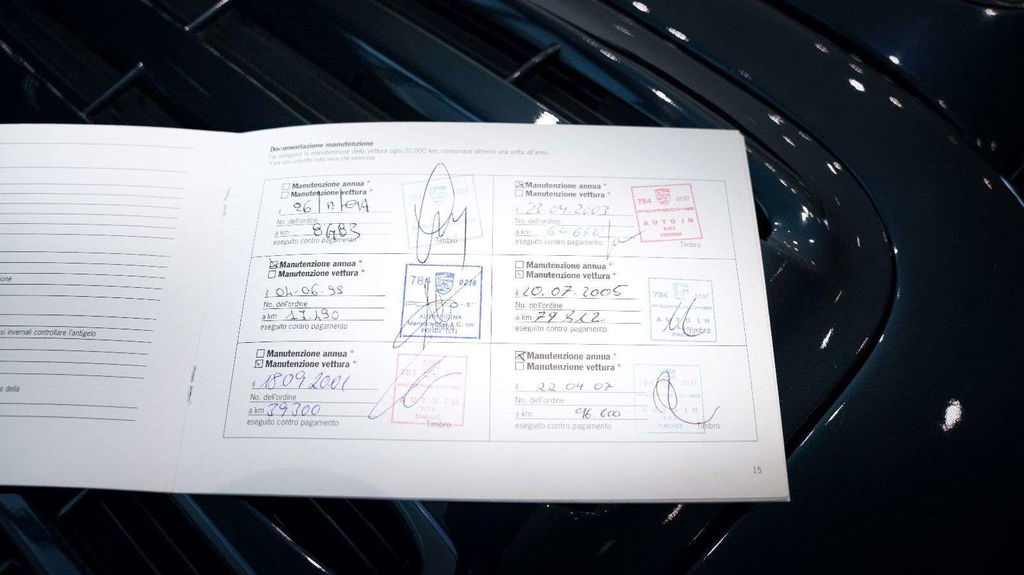 Documentazione manutenzione
Far eseguire la manutenzione della vettura ogni 20 000 km, comunque almeno una volta all'anno.
Manutenzione annua *
Manutenzione vettura *
No. dell'ordine
a km 8683
eseguito contro pagamento
Timbro
Manutenzione annua *
Manutenzione vettura *
il 04-06-99
No. dell'ordine
a km 17.190
eseguito contro pagamento
0216
Manutenzione annua *
Manutenzione vettura *
il 18 09 2001
No. dell'ordine
a km 39300
eseguito contro pagamento
Timbro
Manutenzione annua *
Manutenzione vettura *
23 04 2003
No. dell'ordine
a km
eseguito contro pagamento
784 0137
AUTOIN
S.R.L.
FIRENZE
Timbro
Manutenzione annua *
Manutenzione vettura *
20.07.2005
No. dell'ordine
a km 79312
eseguito contro pagamento
784 0137
Timbro
Manutenzione annua *
Manutenzione vettura *
il 22 04 07
No. dell'ordine
a km 96.600
eseguito contro pagamento
FIRENZE
Timbro
15
si invernali controllare l'antigelo
della